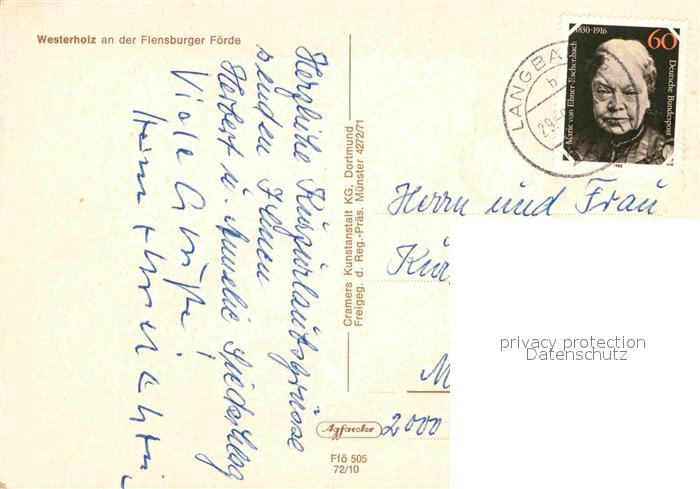 Westerholz an der Flensburger Förde
Herzliche Kurzurlaubsgrüsse
senden Ihnen
Herbert u. Amelie
Viele Grüße!
Cramers Kunstanstalt KG, Dortmund
Freigeg. d. Reg.-Präs. Münster 4272/71
Agfacolor
Ffö 505
72/10
1830-1916
60
Marie von Ebner-Eschenbach
Deutsche Bundespost
1980
LANGBA
b
29.
Herrn und Frau
Kur
M
2000
privacy protection
Datenschutz